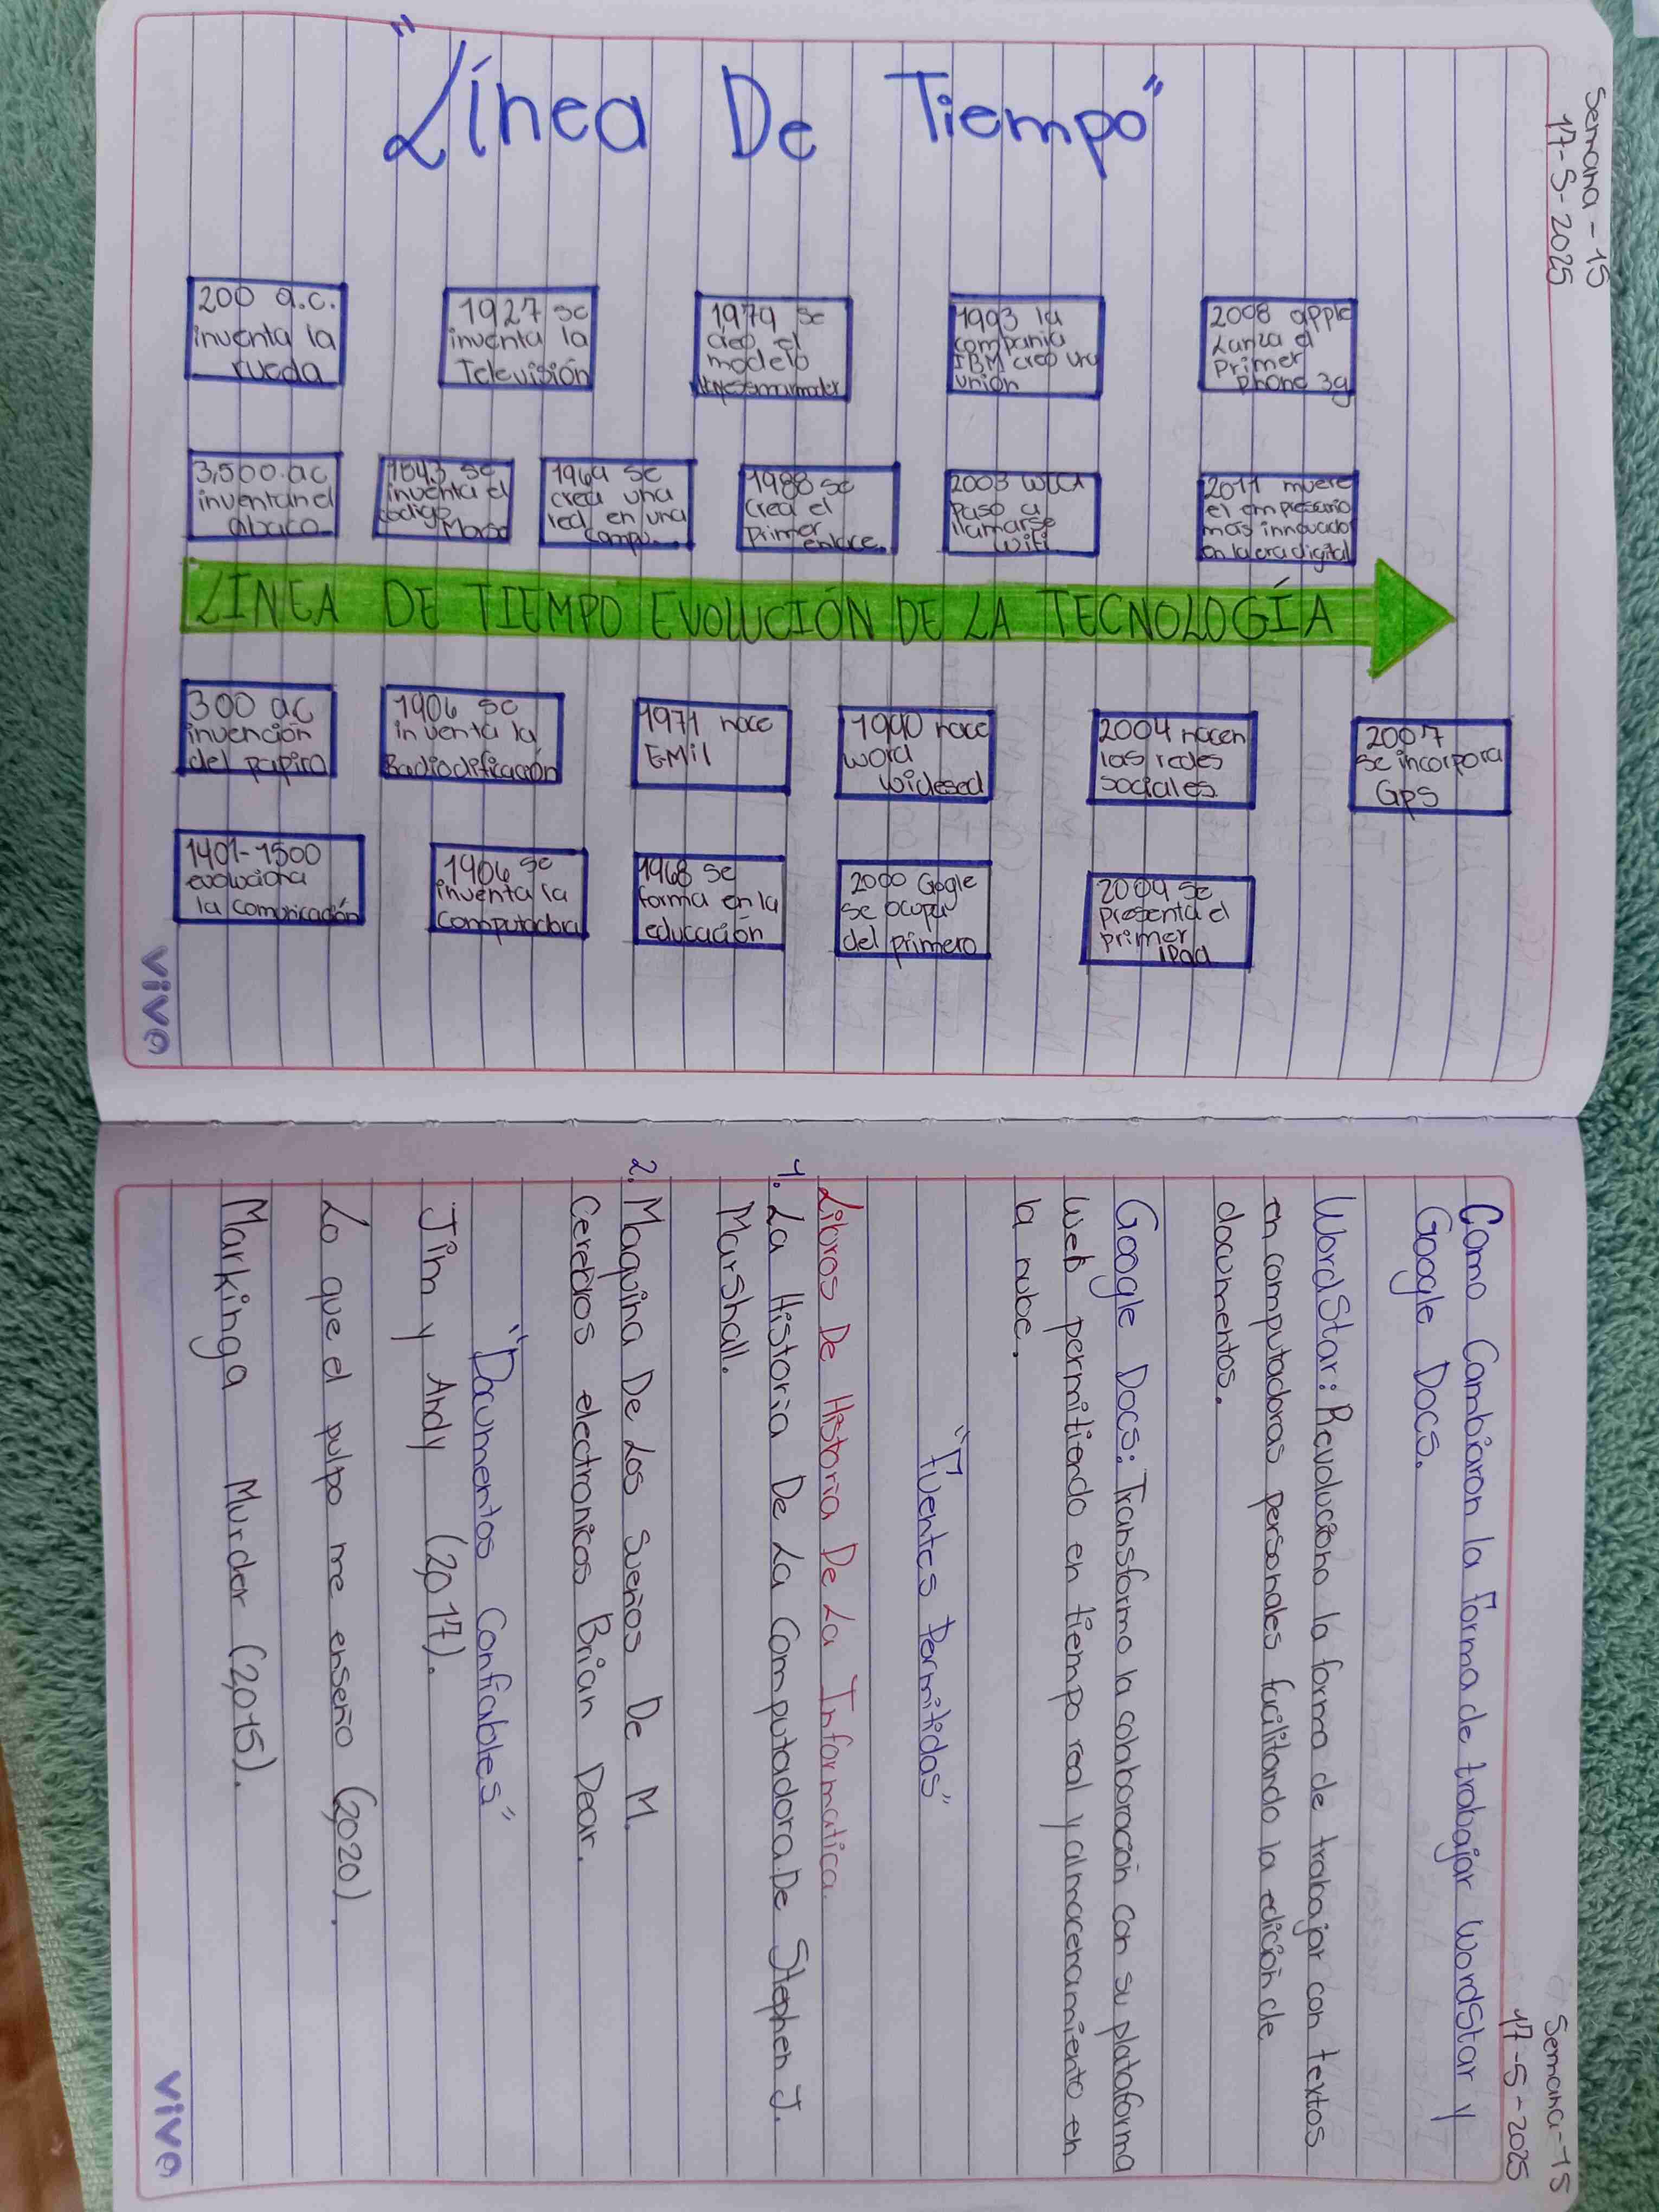 Semana - 15
17-5-2025
"Línea De Tiempo"
200 a.c.
inventa la
rueda
1927 se
inventa la
Televisión
1979 se
creo el
modelo
1993 la
compania
IBM creo una
unión
2008 apple
Lanza el
Primer
phone 3g
3,500.ac
inventan el
abaco
1843 se
inventa el
codigo
Morse
1969 se
crea una
red en una
compu.
1988 se
crea el
primer
enlace.
2003
paso a
llamarse
wifi
2011 muere
el empresario
mas innovado
en la era digital
LÍNEA DE TIEMPO EVOLUCIÓN DE LA TECNOLOGÍA
300 ac
invención
del papiro
1906 se
inventa la
Radiodificación
1971 nace
EMil
1990 nace
word
widesed
2004 nacen
las redes
sociales
2007
se incorpora
GPS
1401-1500
evoluciona
la comunicación
1906 se
inventa la
computadora
1968 se
forma en la
educación
2000 Gogle
se ocupa
del primero
2009 se
presenta el
primer
IPad
vivo
Semana-15
17-5-2025
Como Cambiaron la Forma de trabajar WordStar y
Google Docs.
WordStar: Revoluciono la forma de trabajar con textos
en computadoras personales facilitando la edición de
documentos.
Google Docs: Transformo la colaboración con su plataforma
Web permitiendo en tiempo real y almacenamiento en
la nube.
"Fuentes Permitidas"
Libros De Historia De La Informatica.
1. La Historia De La Computadora De Stephen J.
Marshall.
2. Maquina De Los Sueños De M.
Cerebros electronicos Brian Dear.
"Documentos Confiables"
Jim y Andy (2,017).
Lo que el pulpo me enseño (2,020).
Markinga Murder (2,015).
vivo